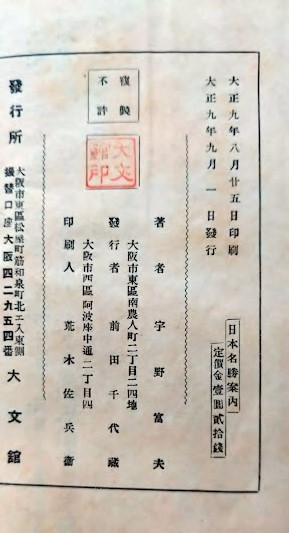 大正九年八月廿五日印刷
大正九年九月一日發行
日本名勝案內
定價金壹圓貳拾錢
不許
複製
大文館印
著者 宇野富夫
大阪市東區南農人町二丁目二四地
發行者 前田千代藏
大阪市西區阿波座中通二丁目四
印刷人 荒木佐兵衞
發行所
大阪市東區松屋町筋和泉町北エ入東側
振替口座大阪四二九五四番
大文館